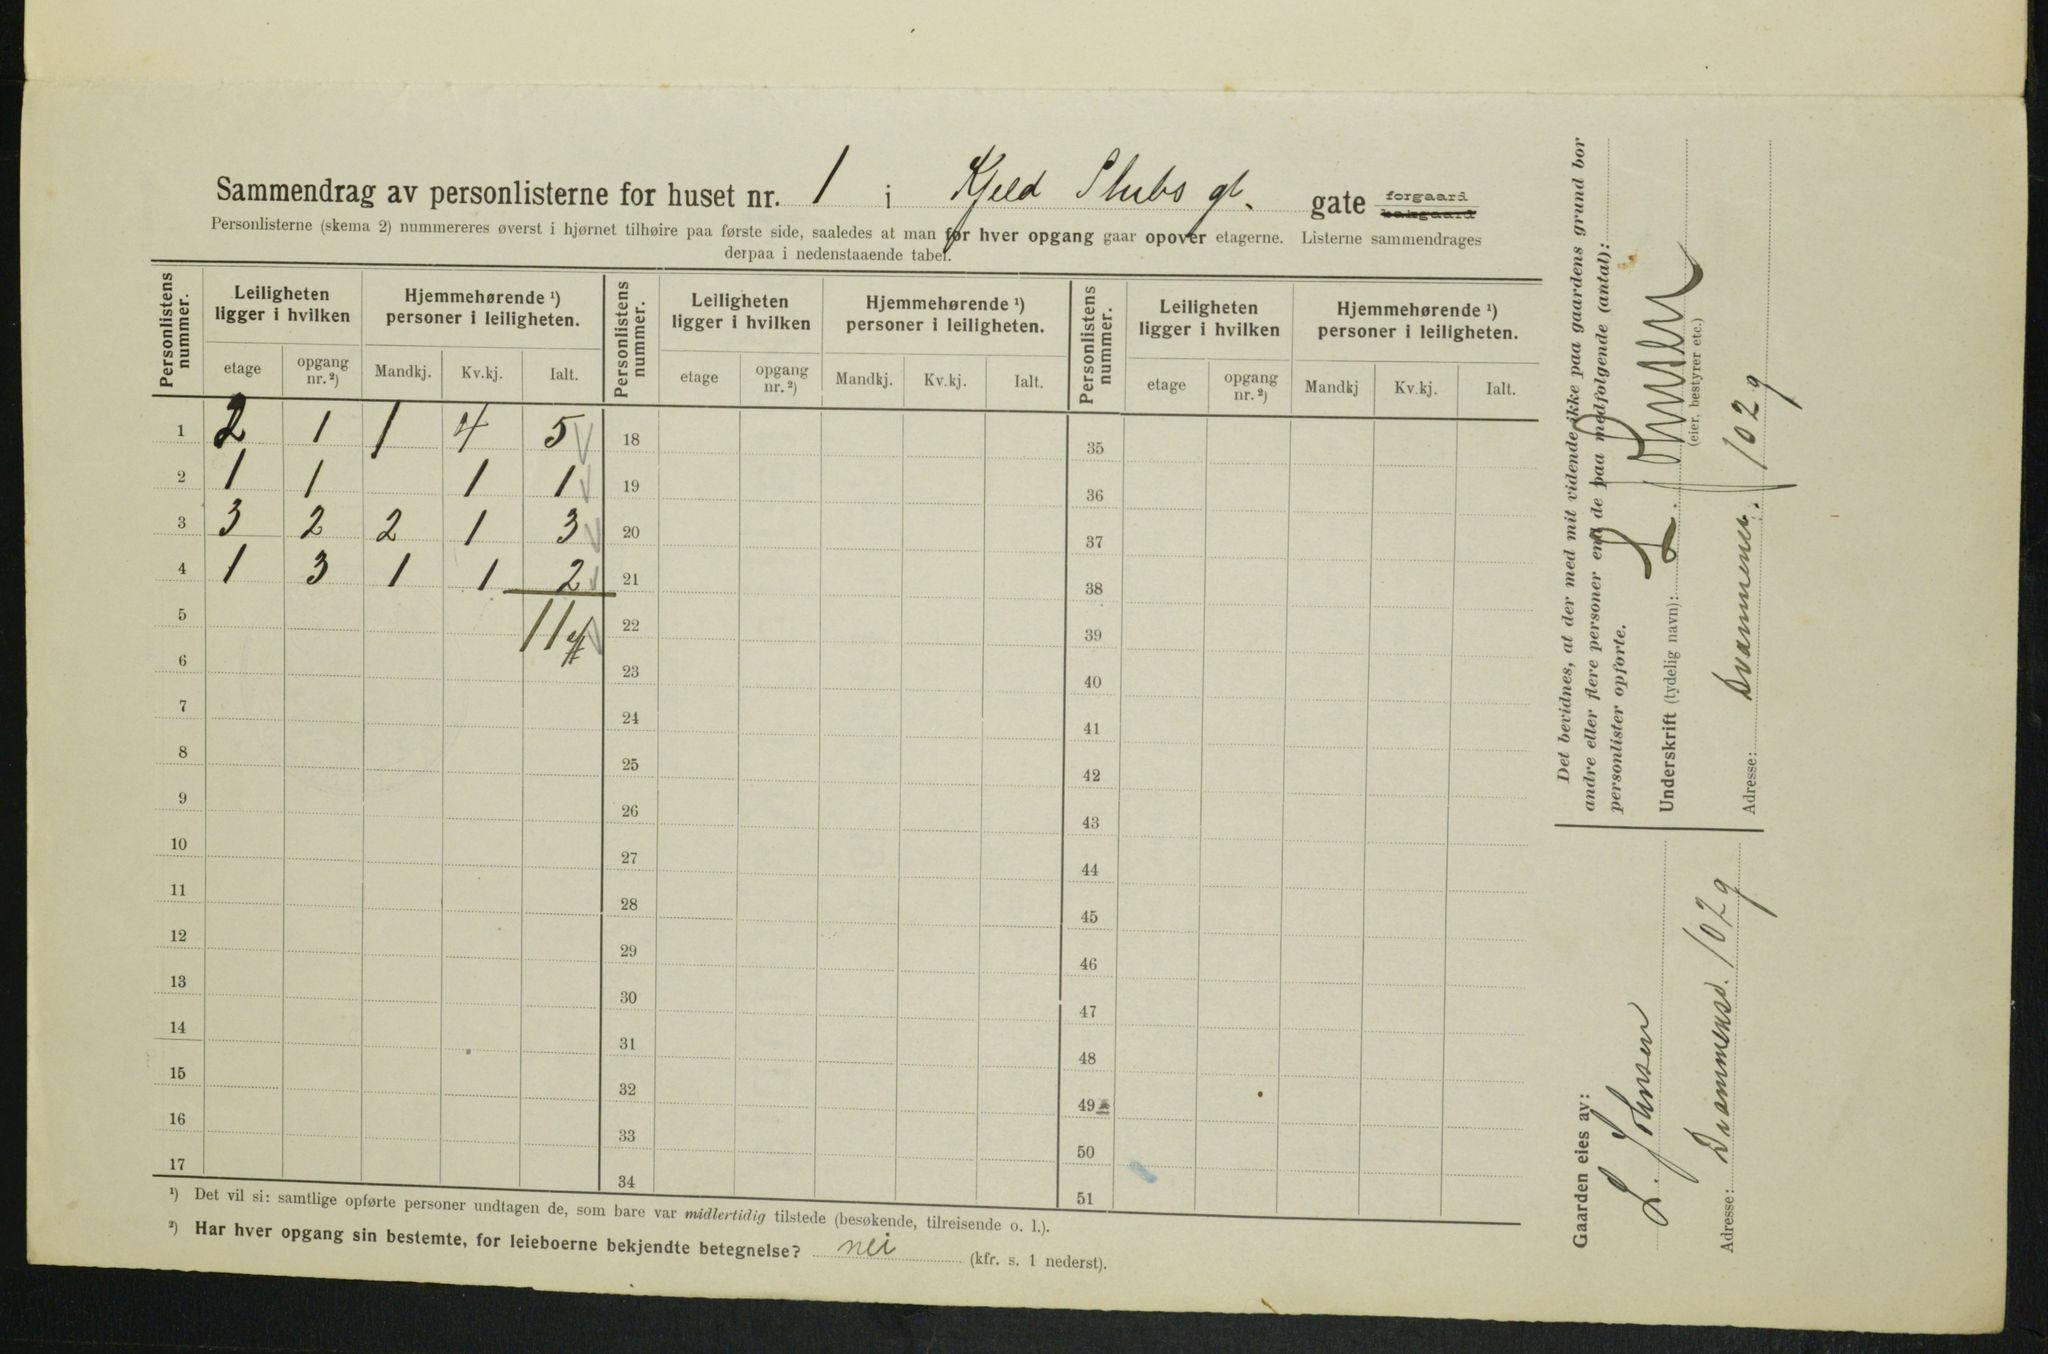 Sammendrag av personlisterne for huset nr. 1 i Kjeld Stubs gt. gate forgaard bakgaard
Personlisterne (skema 2) nummereres øverst i hjørnet tilhøire paa første side, saaledes at man før hver opgang gaar opover etagerne. Listerne sammendrages
derpaa i nedenstaaende tabel.
Personlistens nummer. Leiligheten ligger i hvilken Hjemmehørende ¹) personer i leiligheten. Personlistens nummer. Leiligheten ligger i hvilken Hjemmehørende ¹) personer i leiligheten. Personlistens nummer. Leiligheten ligger i hvilken Hjemmehørende ¹) personer i leiligheten.
etage opgang nr. ²) Mandkj. Kv.kj. Ialt. etage opgang nr. ²) Mandkj. Kv.kj. Ialt. etage opgang nr. ²) Mandkj Kv.kj. Ialt.
1 2 1 1 4 5 18 35
2 1 1 1 1 19 36
3 3 2 2 1 3 20 37
4 1 3 1 1 2 21 38
5 11 22 39
6 23 40
7 24 41
8 25 42
9 26 43
10 27 44
11 28 45
12 29 46
13 30 47
14 31 48
15 32 49
16 33 50
17 34 51
¹) Det vil si: samtlige opførte personer undtagen de, som bare var midlertidig tilstede (besøkende, tilreisende o. l.).
²) Har hver opgang sin bestemte, for leieboerne bekjendte betegnelse? nei (kfr. s. 1 nederst).
Det bevidnes, at der med mit vidende ikke paa gaardens grund bor
andre eller flere personer end de paa medfølgende (antal):
personlister opførte.
Underskrift (tydelig navn): L. Johnsen
(eier, bestyrer etc.)
Adresse: Drammensv. 102 9
Gaarden eies av:
L. Johnsen
Adresse: Drammensv. 102 9